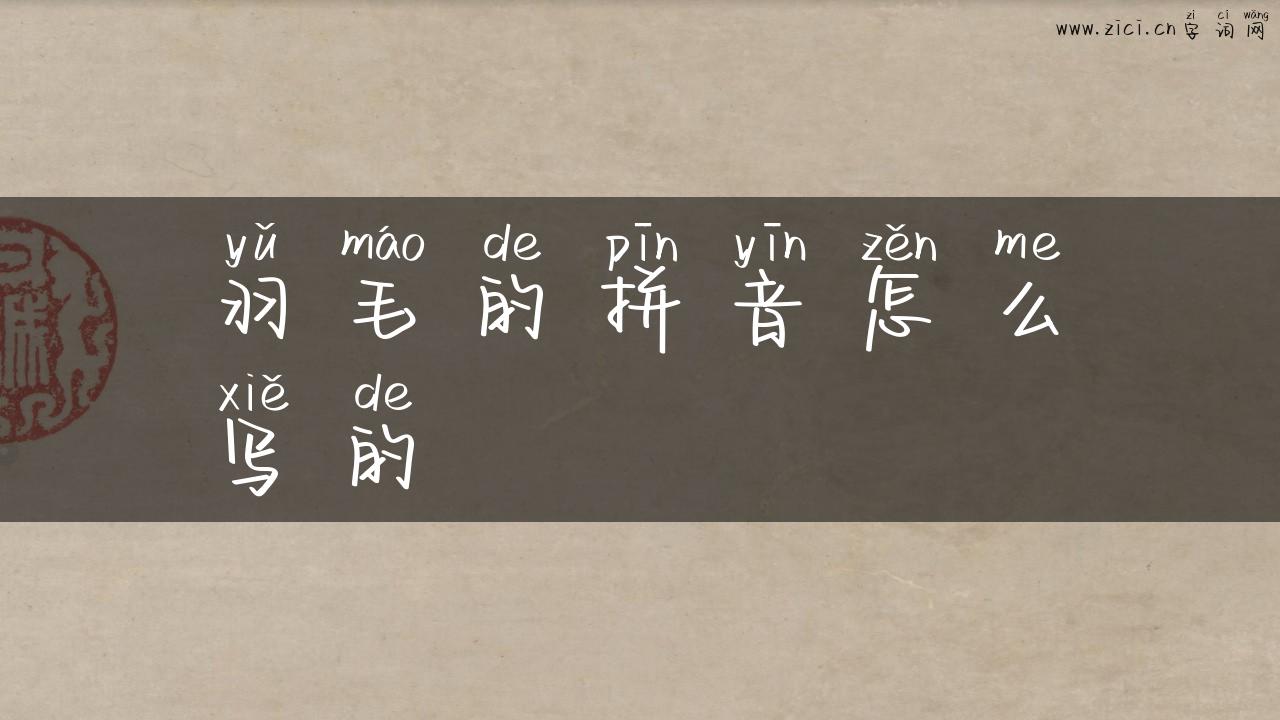 zì cí wǎng
www.zici.cn 字词网
yǔ máo de pīn yīn zěn me
羽毛的拼音怎么
xiě de
写的